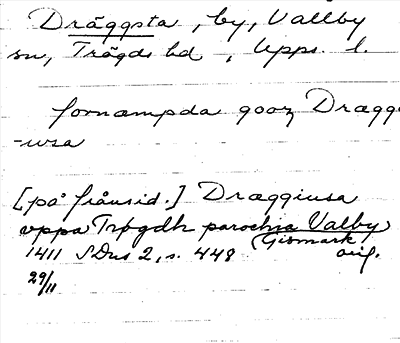 Dräggsta, by, Vallby
sn, Trögds hd, Upps. l.
fornæmpda gooz Drægg
-iusa
[på frånsid.] Dræggiusa
vppa Trøgdh parochia Valby
(Gismark
1411 SDns 2, s. 448 orig.
29/11